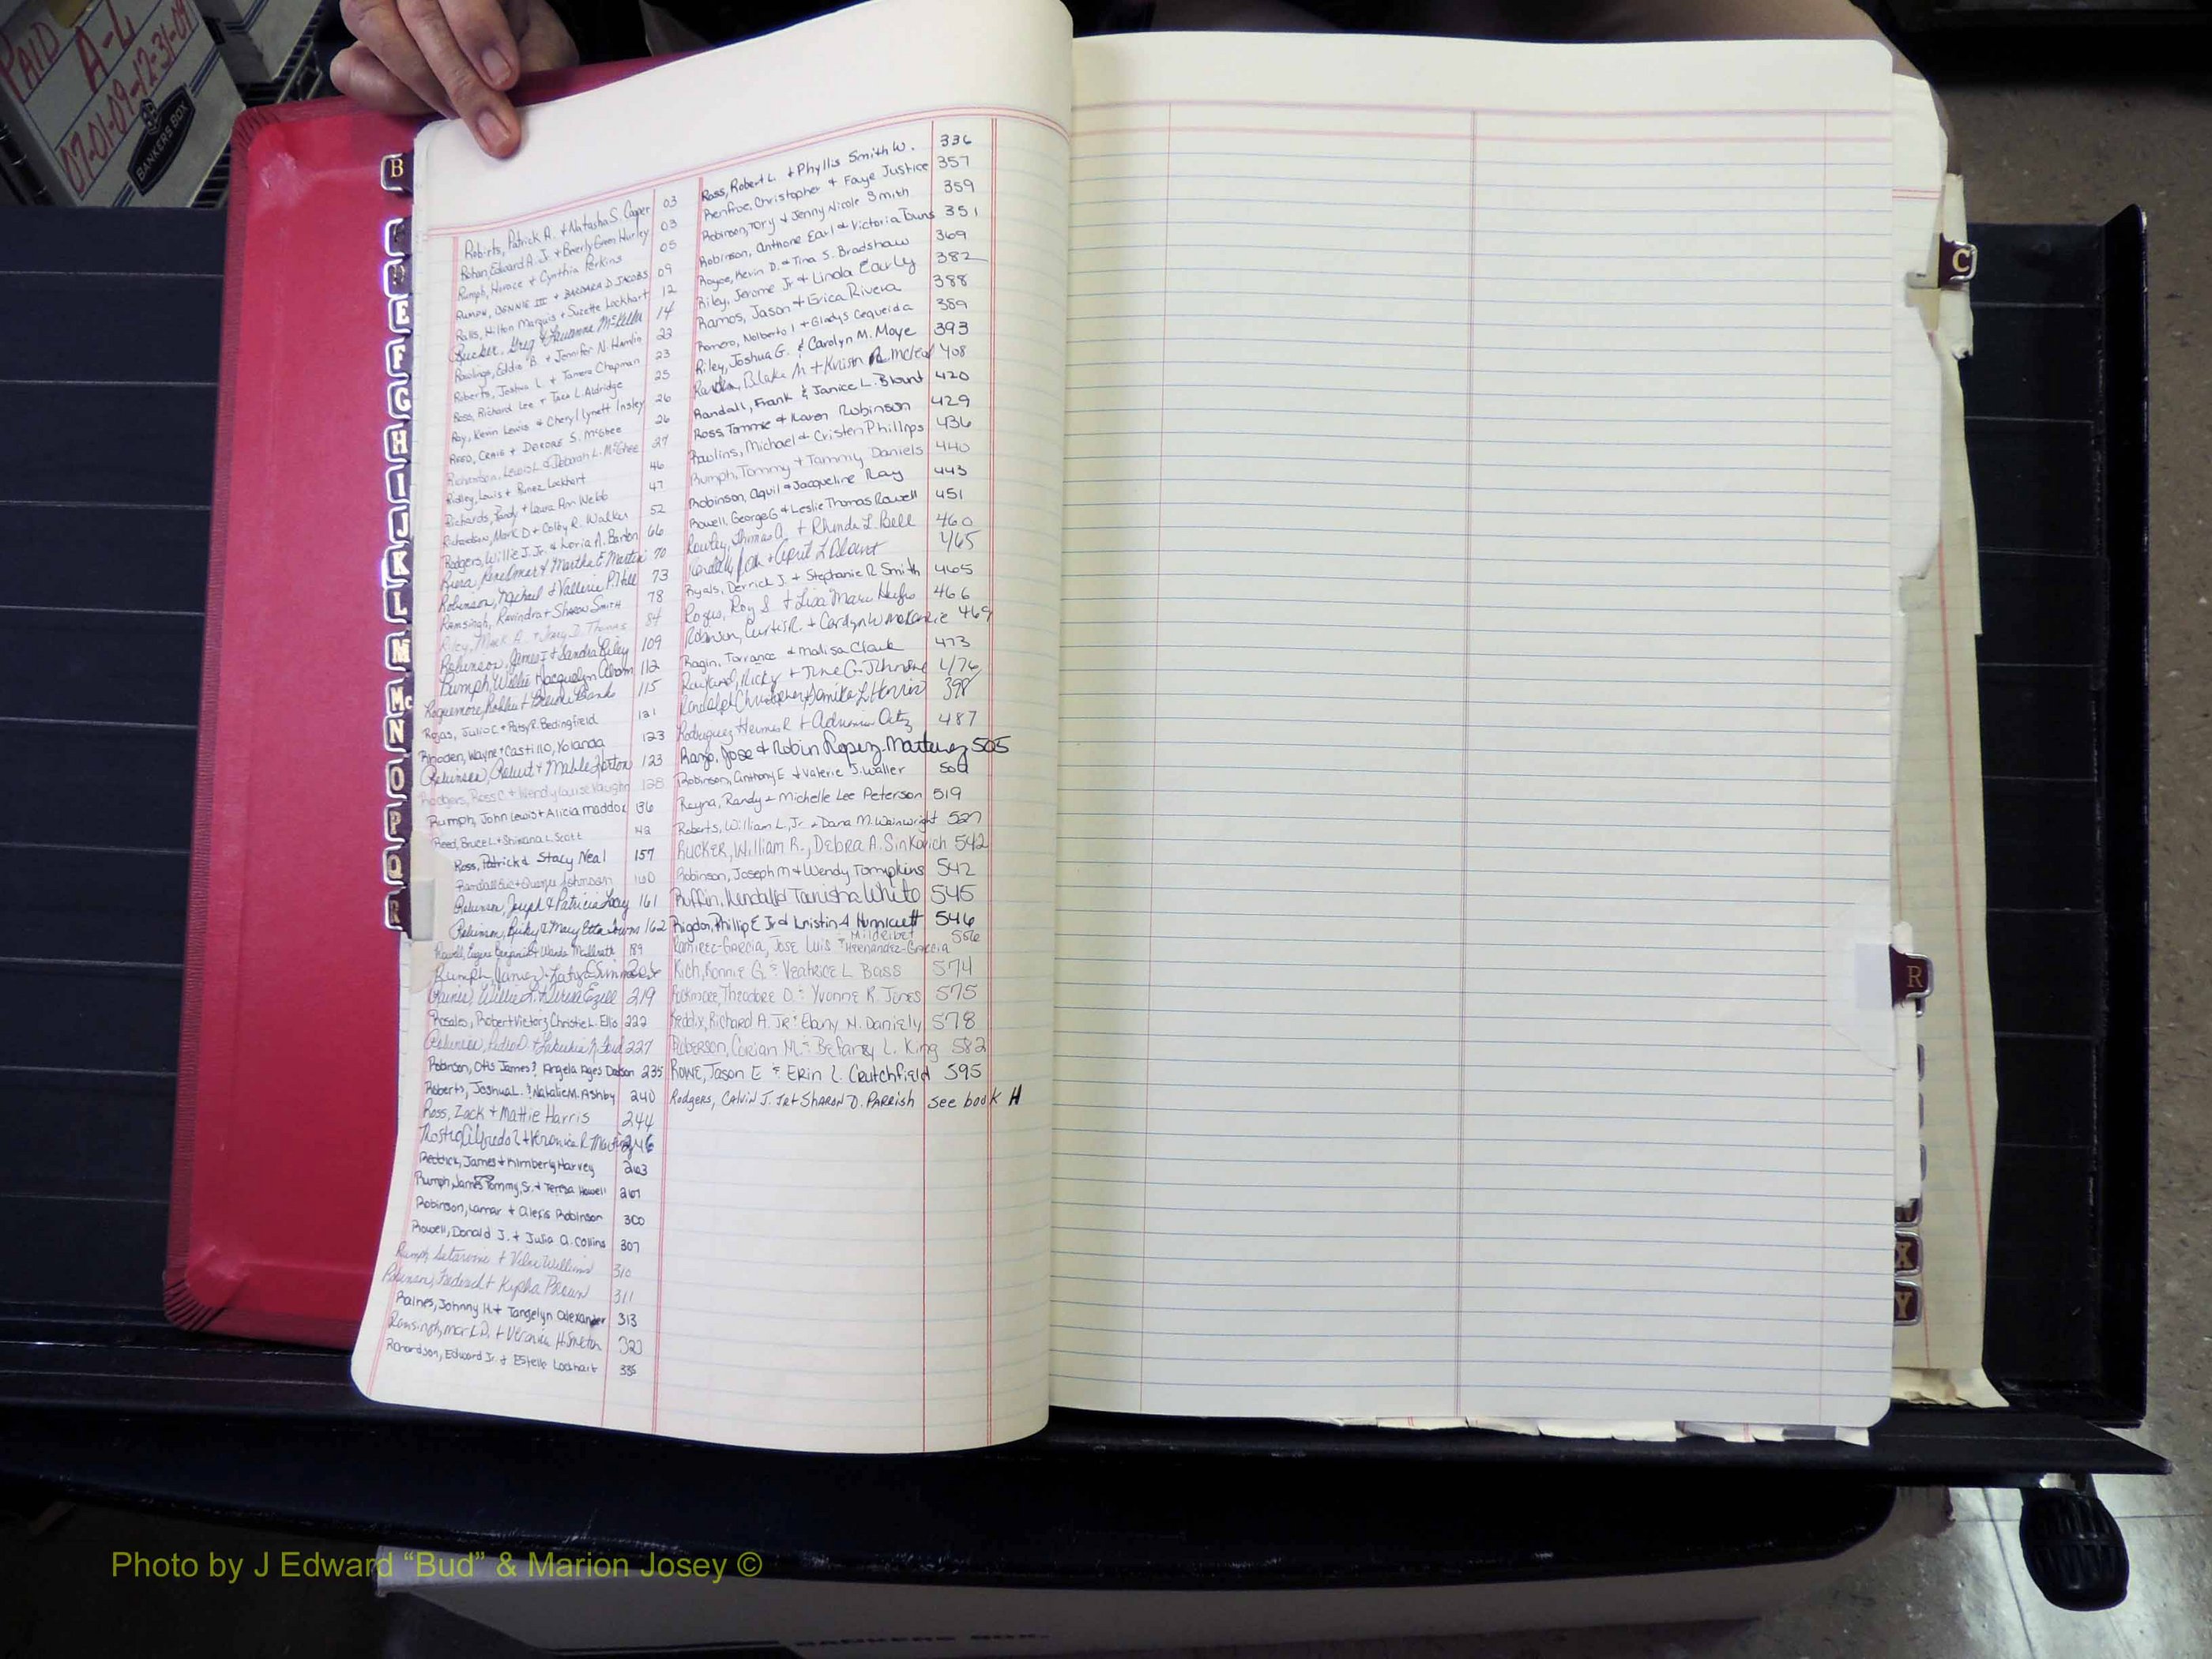 PAID
A-L
07-01-09-12-31-09
BANKERS BOX
B
E
F
G
H
I
J
K
L
M
Mc
N
O
P
Q
R
Roberts, Patrick A. + Natasha S. Cooper 03
Rohan, Edward A. Jr. + Beverly Green Hurley 03
Rumph, Horace + Cynthia Perkins 05
Rumph, Bennie III + Barbara D. Jacobs 09
Ralls, Hilton Marquis + Suzette Lockhart 12
Rucker, Greg + McKellar 14
Rawlings, Eddie B. + Jennifer N. Hamlin 22
Roberts, Joshua L. + Tamera Chapman 23
Ross, Richard Lee + Tara L. Aldridge 25
Roy, Kevin Lewis + Cheryl Lynett Insley 26
Reed, Craig + Deirdre S. McGhee 26
Richardson, Lewis L. & Deborah L. McGhee 27
Ridley, Louis + Lockhart 46
Richards, Randy + Laura Ann Webb 47
Richardson, Mark D + Colby R. Walker 52
Rodgers, Willie J. Jr. & Loria A. Barton 66
Riera, Rene Omar & Martha E Martin 70
Robinson, Michael & Vallerie P. Hill 73
Ramsingh, Ravindra + Sharon Smith 78
Riley, Mark A. + Tracy D. Thomas 84
Robinson, James I + Sandra Riley 109
Rumph, Willie + Jacquelyn 112
Roquemore, Robbie + Brenda Banks 115
Rojas, Julio C. + Patsy R. Bedingfield 121
Rhoden, Wayne + Castillo, Yolanda 123
Robinson, Robert + Mable Horton 123
Rodgers, Ross C. + Wendy Louise Vaughn 128
Rumph, John Lewis + Alicia Maddox 136
Reed, Bruce L. + Shimana L. Scott 142
Ross, Patrick & Stacy Neal 157
Randall Johnson 160
Robinson, Joseph & Patricia 161
Robinson, Ricky & Mary Etta Towns 162
Rowell, Eugene Benjamin & Wanda 189
Rumph, James
Raines, Willie L. + Teresa Ezell 219
Rosales, Robert Victor & Christie L. Ellis 222
Robinson, Pedro D. + Lakeshia N. Ford 227
Robinson, Otis James & Angela Ages Dobson 235
Roberts, Joshua L. & Natalie M. Ashby 240
Ross, Zack + Mattie Harris 244
246
Reddick, James + Kimberly Harvey 263
Rumph, James Tommy, Sr. + Teresa Howell 267
Robinson, Lamar + Alexis Robinson 300
Rowell, Donald J. + Julia A. Collins 307
Rumph, + Williams 310
Robinson, Frederick + Kysha Brown 311
Raines, Johnny H. + Tangelyn Alexander 313
Ramsingh, Mark D. + Veronica H. 323
Richardson, Edward Jr. + Estelle Lockhart 335
Ross, Robert L. + Phyllis Smith W. 336
Renfroe, Christopher + Faye Justice 357
Robinson, Tory + Jenny Nicole Smith 359
Robinson, Anthone Earl & Victoria Towns 351
Royce, Kevin D. & Tina S. Bradshaw 369
Riley, Jerome Jr & Linda Early 382
Ramos, Jason + Erica Rivera 388
Romero, Nolberto I + Gladys Cequeida 389
Riley, Joshua G. & Carolyn M. Moye 393
Blake M + Kristin R. McLeod 408
Randall, Frank & Janice L. Blount 420
Ross, Tommie & Karen Robinson 429
Rawlins, Michael & Cristen Phillips 436
Rumph, Tommy + Tammy Daniels 440
Robinson, Aquil & Jacqueline Ray 443
Rowell, George G & Leslie Thomas Rowell 451
Rowley, Thomas A. + Rhonda L. Bell 460
+ April L Blount 465
Ryals, Derrick J. + Stephanie R Smith 465
Rogers, Roy S. + Lisa Marie 466
Robinson, Curtis R. + Carolyn W McKenzie 469
Ragin, Torrance & Malisa Clark 473
Ricky + June G. Johnson 476
Randolph, Christopher + Tamika L. Harris 398
Rodriguez, R + Adriana Ortiz 487
Jose & Robin Lopez-Martinez 505
Robinson, Anthony E. & Valerie J. Waller 509
Reyna, Randy + Michelle Lee Peterson 519
Roberts, William L., Jr. + Dana M. Wainwright 527
Rucker, William R., Debra A. Sinkovich 542
Robinson, Joseph M + Wendy Tompkins 542
Ruffin, Kendall & Tanisha White 545
Rigdon, Phillip E Jr & Kristin A Hunnicutt 546
Ramirez-Garcia, Jose Luis & Mildribet Hernandez-Garcia 556
Rich, Ronnie G. & Veatrice L Bass 574
Rockmore, Theodore D. & Yvonne R. Jones 575
Reddix, Richard A. Jr & Ebony N. Daniely 578
Roberson, Corian M. & Befany L. King 582
Rowe, Jason E & Erin L. Crutchfield 595
Rodgers, Calvin J. Jr + Sharon D. Parrish see book H
C
R
X
Y
Photo by J Edward “Bud” & Marion Josey ©